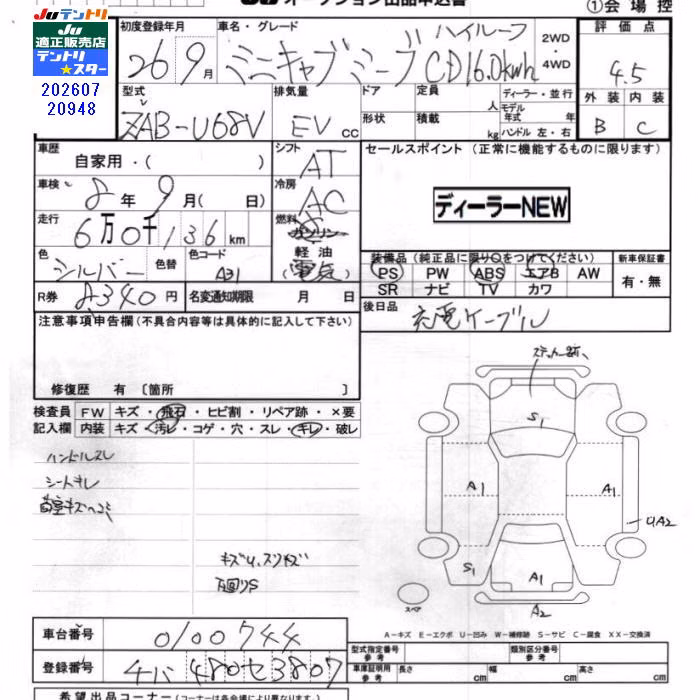 JUテントリ
JU
適正販売店
テントリ
★スター
202607
20948
JU オークション出品申込書
①会場控
初度登録年月
26 9月
車名・グレード
ハイルーフ
ミニキャブミーブ CD16.0kwh
2WD・4WD
評価点
4.5
外装 内装
B C
型式
ZAB-U68V
排気量
EV cc
ドア
形状
定員
人
積載
kg
ディーラー・並行
モデル年式 年
ハンドル 左・右
車歴
自家用・( )
シフト
AT
セールスポイント (正常に機能するものに限ります)
ディーラーNEW
車検
8年 9月( 日)
冷房
AC
走行
6万0千136km
燃料
ガソリン
軽油
(電気)
色
シルバー
色替
色コード
A31
R券
8340円
名変通知期限 月 日
装備品(純正品に限り○をつけてください)
PS PW ABS エアB AW
SR ナビ TV カワ
新車保証書
有・無
後日品
充電ケーブル
注意事項申告欄(不具合内容等は具体的に記入して下さい)
修復歴 有 〔箇所 〕
検査員記入欄
FW キズ・飛石・ヒビ割・リペア跡・×要
内装 キズ・汚レ・コゲ・穴・スレ・キレ・破レ
ハンドルスレ
シートキレ
荷室キズヘコミ
キズU、スリキズ
下回りS
S1
A1
A1
UA2
S1
A1
A2
スペア
A-キズ E-エクボ U-凹み W-補修跡 S-サビ C-腐食 XX-交換済
車台番号
0100744
登録番号
480セ3807
型式指定番号
参考
類別区分番号
参考
車庫証明用
参考
長さ cm
幅 cm
高さ cm
希望出品コーナー(コーナーは各会場により異なります。)